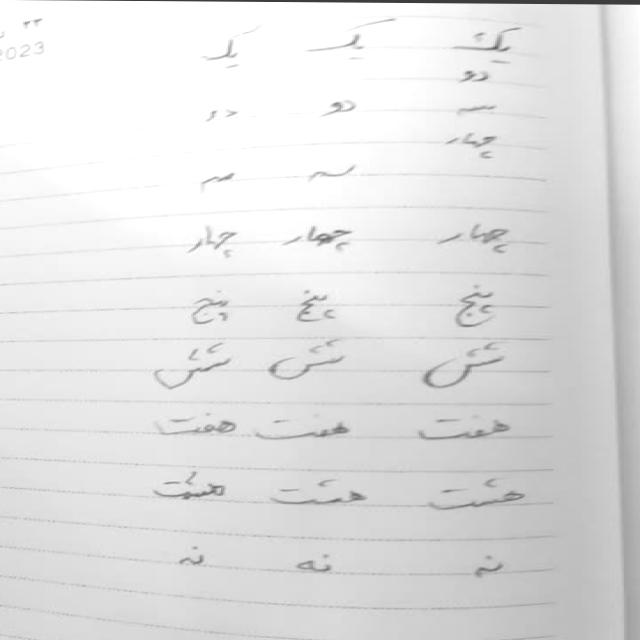 ۲۲
2023
یک یک یک
دو
سه دو دو
چهار
سه سه
چهار چهار چهار
پنج پنج پنج
شش شش شش
هفت هفت هفت
هشت هشت هشت
نه نه نه